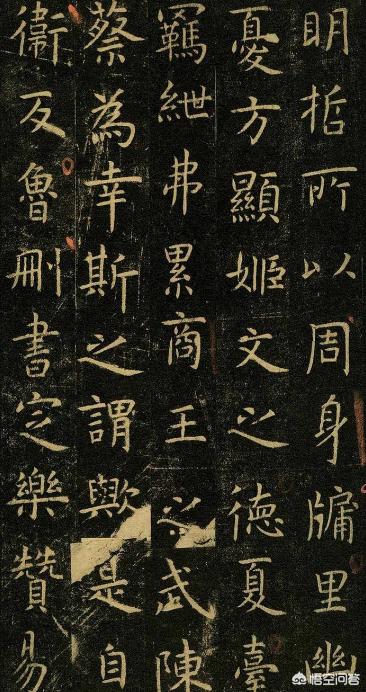 明哲所以周身牖里幽
憂方顯姬文之德夏臺
羈紲弗累商王之武陳
蔡為幸斯之謂歟是自
衛反魯刪書定樂贊易
悟空问答